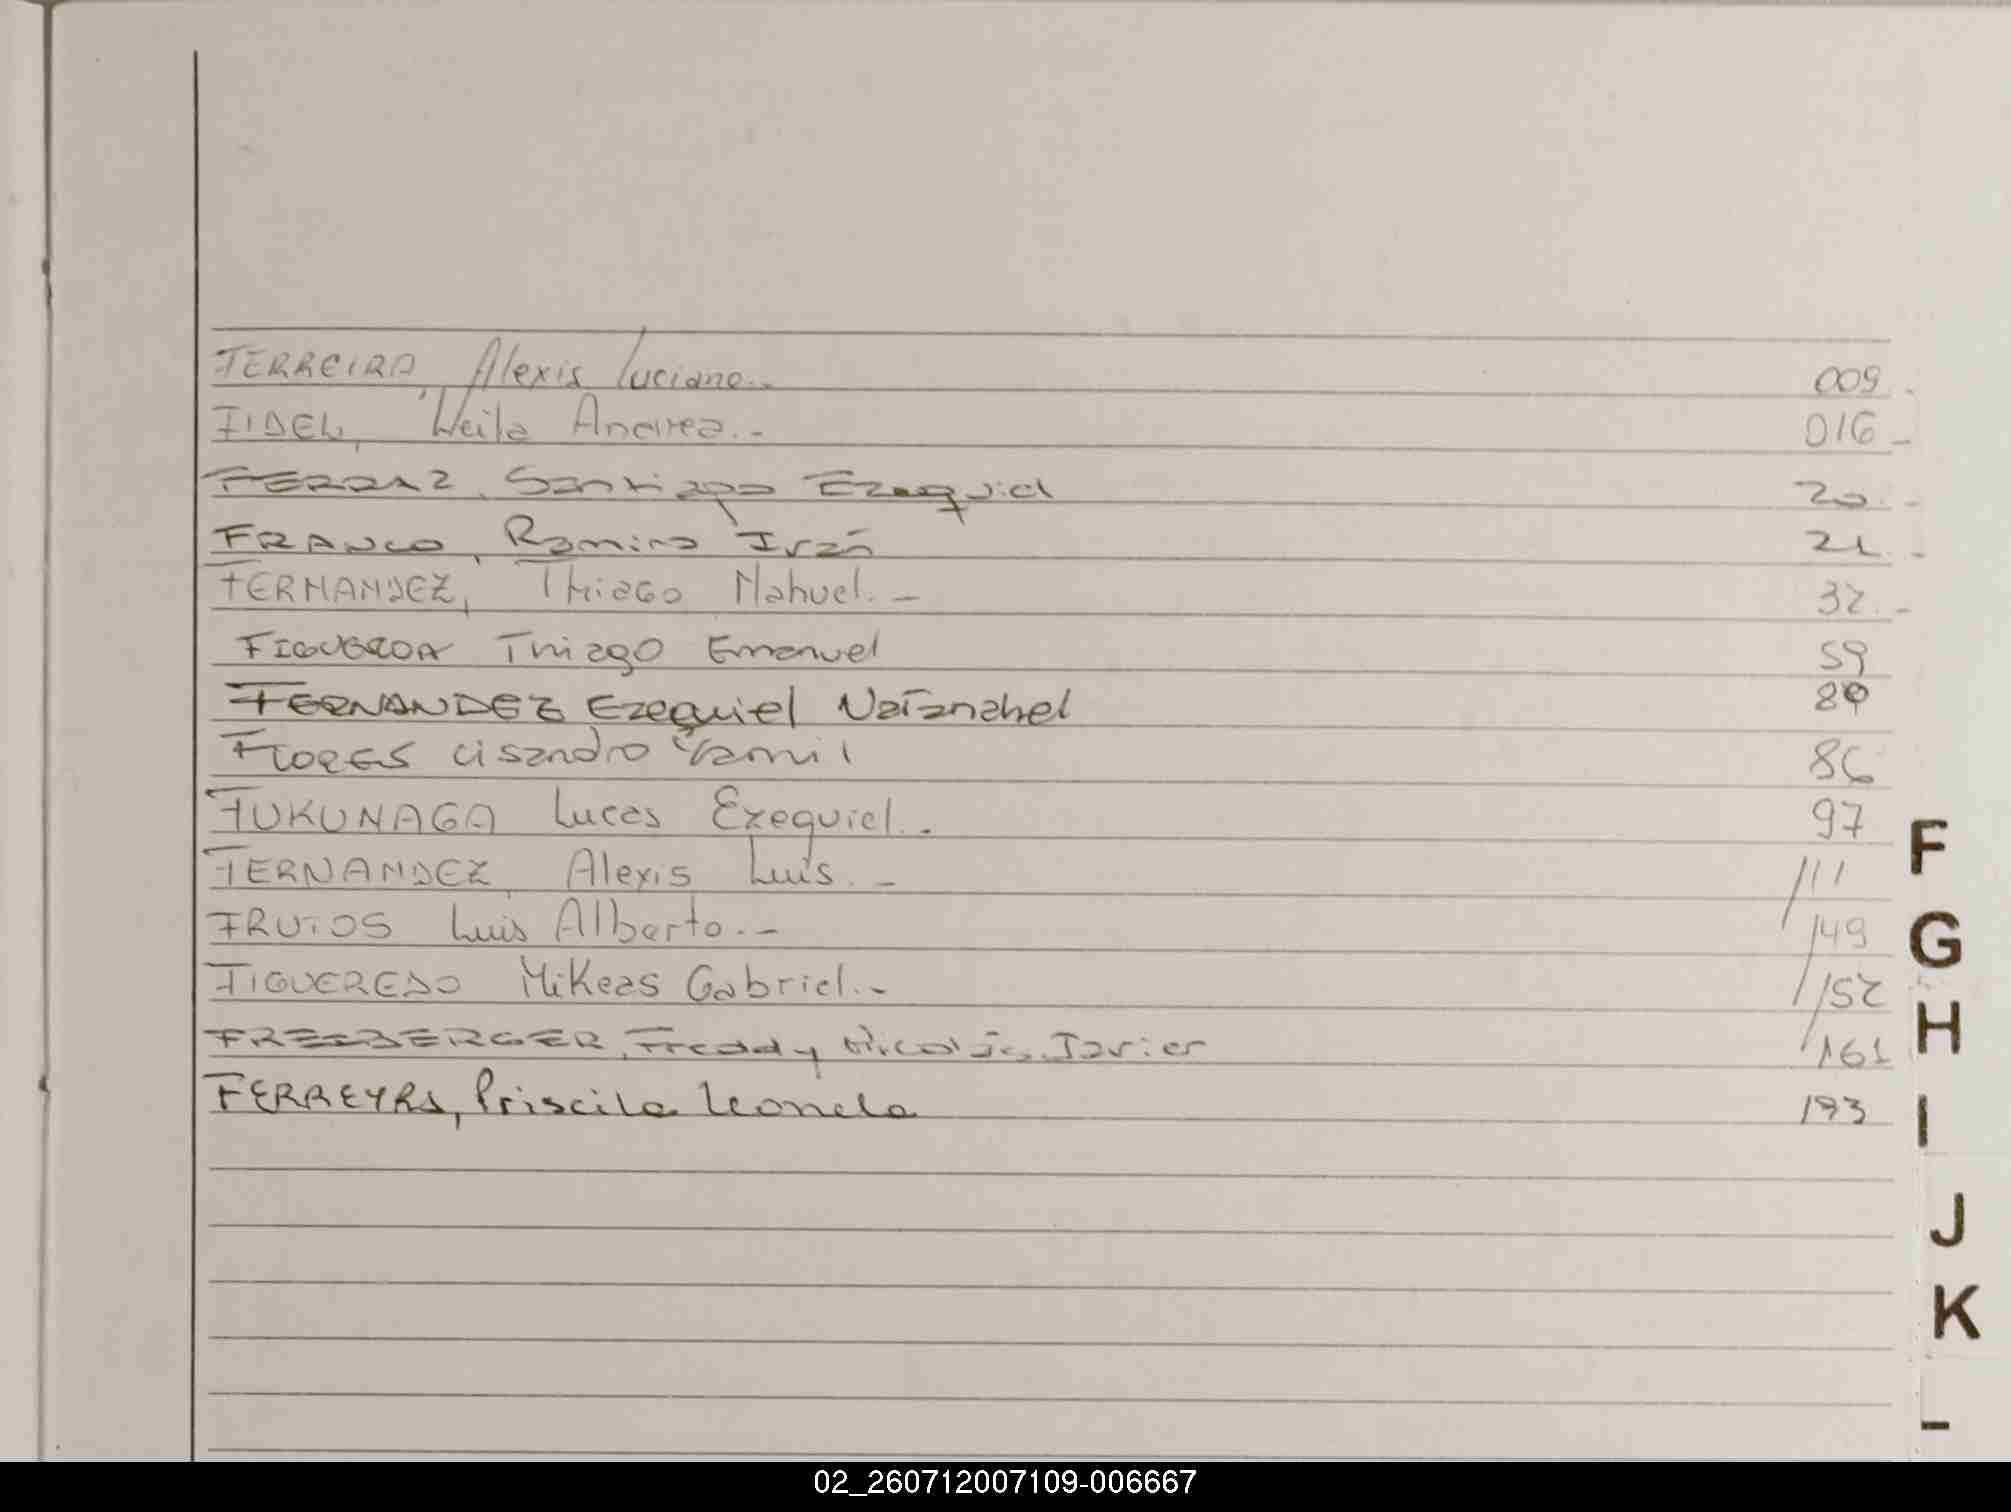 FERREIRA, Alexis Luciano.- 009.-
FIDEL, Leila Andrea.- 016-
FERRAZ, Santiago Ezequiel 20.-
FRANCO, Ramiro Iván 21.-
FERNANDEZ, Thiago Nahuel.- 32.-
FIGUEROA Thiago Emanuel 59
FERNANDEZ Ezequiel Natanahel
FLORES Lisandro Yamil 86
FUKUNAGA Lucas Ezequiel.. 97
FERNANDEZ, Alexis Luis.- 111
FRUTOS Luis Alberto.- 149
FIGUEREDO Mikeas Gabriel.- 152
FREIBERGER, Freddy Nicolás Javier 161
FERREYRA, Priscila Leonela 193
F
G
H
I
J
K
02_260712007109-006667